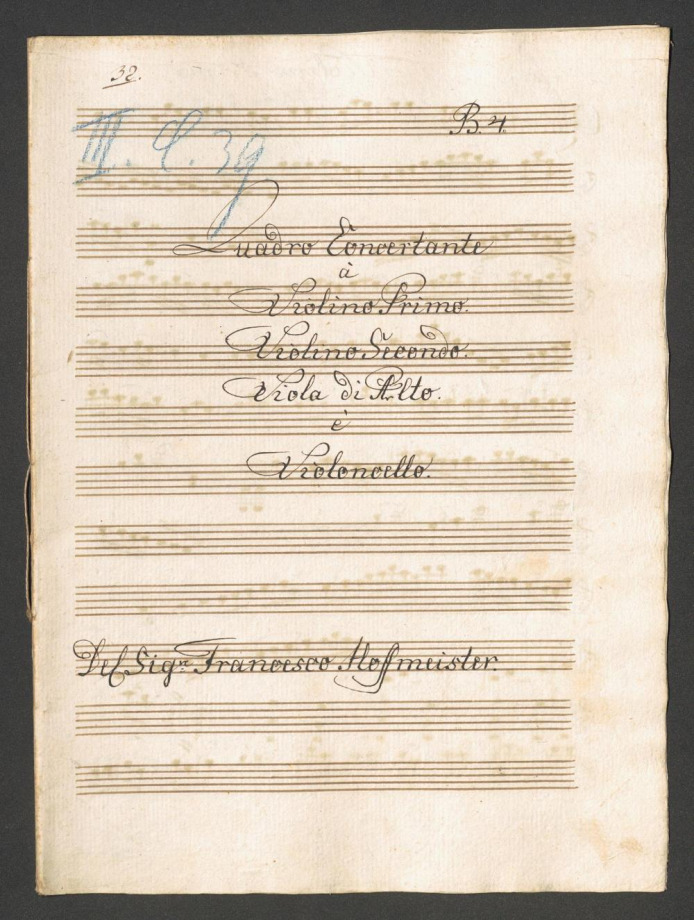 32.
B. 4.
III. C. 39
Quadro Concertante
à
Violino Primo.
Violino Secondo.
Viola di Alto.
è
Violoncello.
Del Sigr. Francesco Hoffmeister.